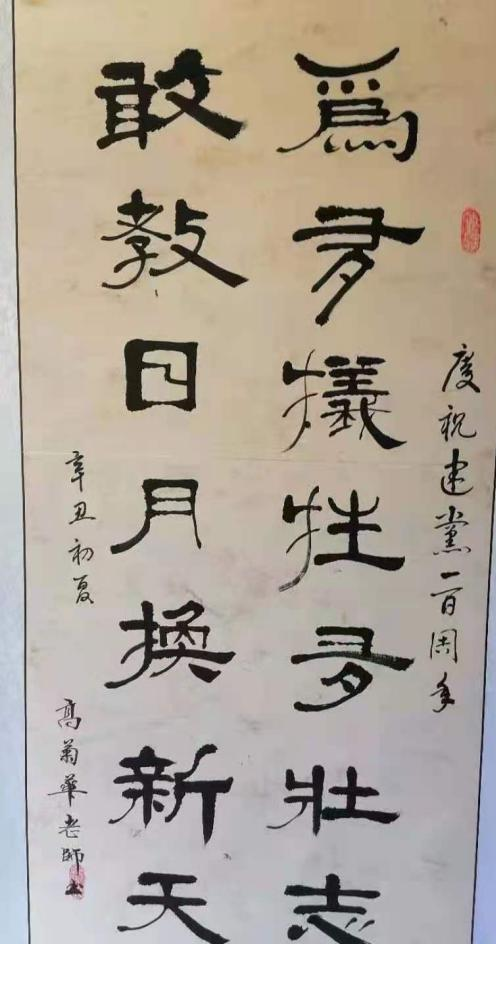 慶祝建黨一百周年
爲有犧牲多壯志
敢教日月換新天
辛丑初夏
高菊華老師書